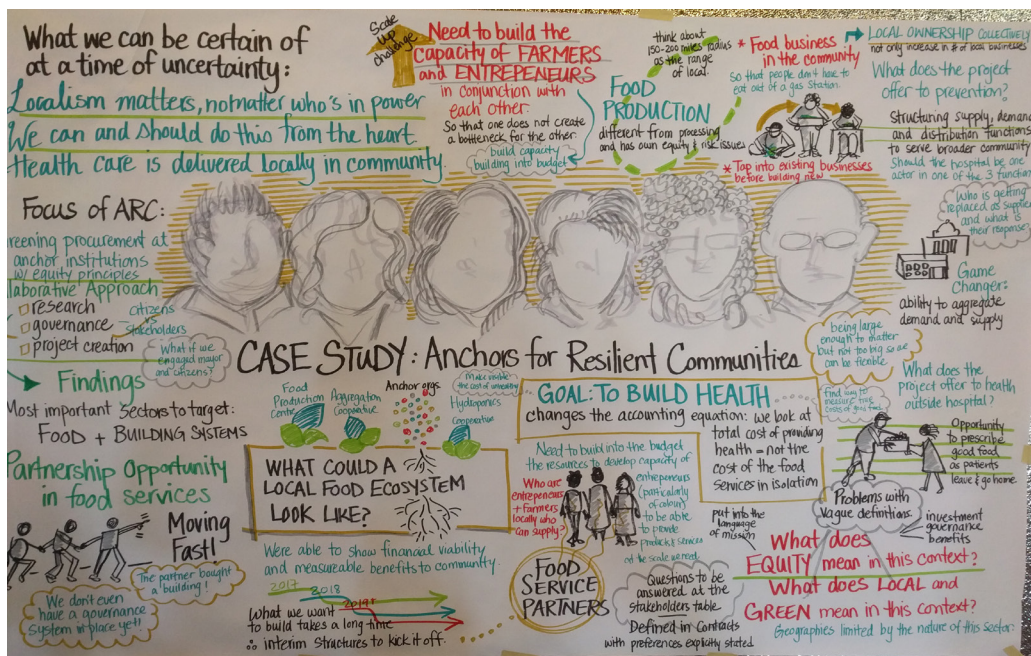 What we can be certain of
at a time of uncertainty:
Localism matters, no matter who's in power
We can and should do this from the heart.
Health care is delivered locally in community.
Focus of ARC:
reening procurement at
anchor institutions
w/ equity principles
laborative Approach
research
governance
project creation
citizens
vs
stakeholders
What if we
engaged mayor
and citizens?
Findings
Most important Sectors to target:
FOOD + BUILDING SYSTEMS
Partnership Opportunity
in food services
Moving
Fast!
The partner bought
a building!
We don't even
have a governance
system in place yet!!
Scale
Up
challenge
Need to build the
capacity of FARMERS
and ENTREPENEURS
in conjunction with
each other.
So that one does not create
a bottleneck for the other.
build capacity
building into budget
think about
150-200 miles radius
as the range
of local.
FOOD
PRODUCTION
different from processing
and has own equity & risk issues
* Food business
in the community
So that people don't have to
eat out of a gas station.
* Tap into existing businesses
before building new
LOCAL OWNERSHIP COLLECTIVELY
not only increase in # of local businesses
What does the project
offer to prevention?
Structuring supply, demand
and distribution functions
to serve broader community
Should the hospital be one
actor in one of the 3 function
Who is getting
replaced as supplier
and what is
their response
Game
Changer:
ability to aggregate
demand and supply
being large
enough to matter
but not too big so we
can be flexible
What does the
project offer to health
outside hospital?
CASE STUDY: Anchors for Resilient Communities
Food
Production
Centre
Aggregation
Cooperative
Anchor orgs.
Make visible
the cost of
Hydroponics
Cooperative
WHAT COULD A
LOCAL FOOD ECOSYSTEM
LOOK LIKE?
Were able to show financial viability
and measureable benefits to community.
2017
2018
2019
What we want
to build takes a long time
∴ interim structures to kick it off.
GOAL: TO BUILD HEALTH
changes the accounting equation: we look at
total cost of providing
health = not the
cost of the food
services in isolation
Need to build into the budget
the resources to develop capacity of
entrepeneurs
(particularly
of colour)
to be able
to provide
products & services
at the scale
Who are
entrepeneurs
+ farmers
locally who
can supply?
FOOD
SERVICE
PARTNERS
Questions to be
answered at the
stakeholders table
Defined in Contracts
with preferences explicitly stated
put into the
language
of mission
find way to
measure true
costs of good food
Opportunity
to prescribe
good food
as patients
leave & go home
Problems with
Vague definitions
investment
governance
benefits
What does
EQUITY mean in this context?
What does LOCAL and
GREEN mean in this context?
Geographies limited by the nature of this sector.